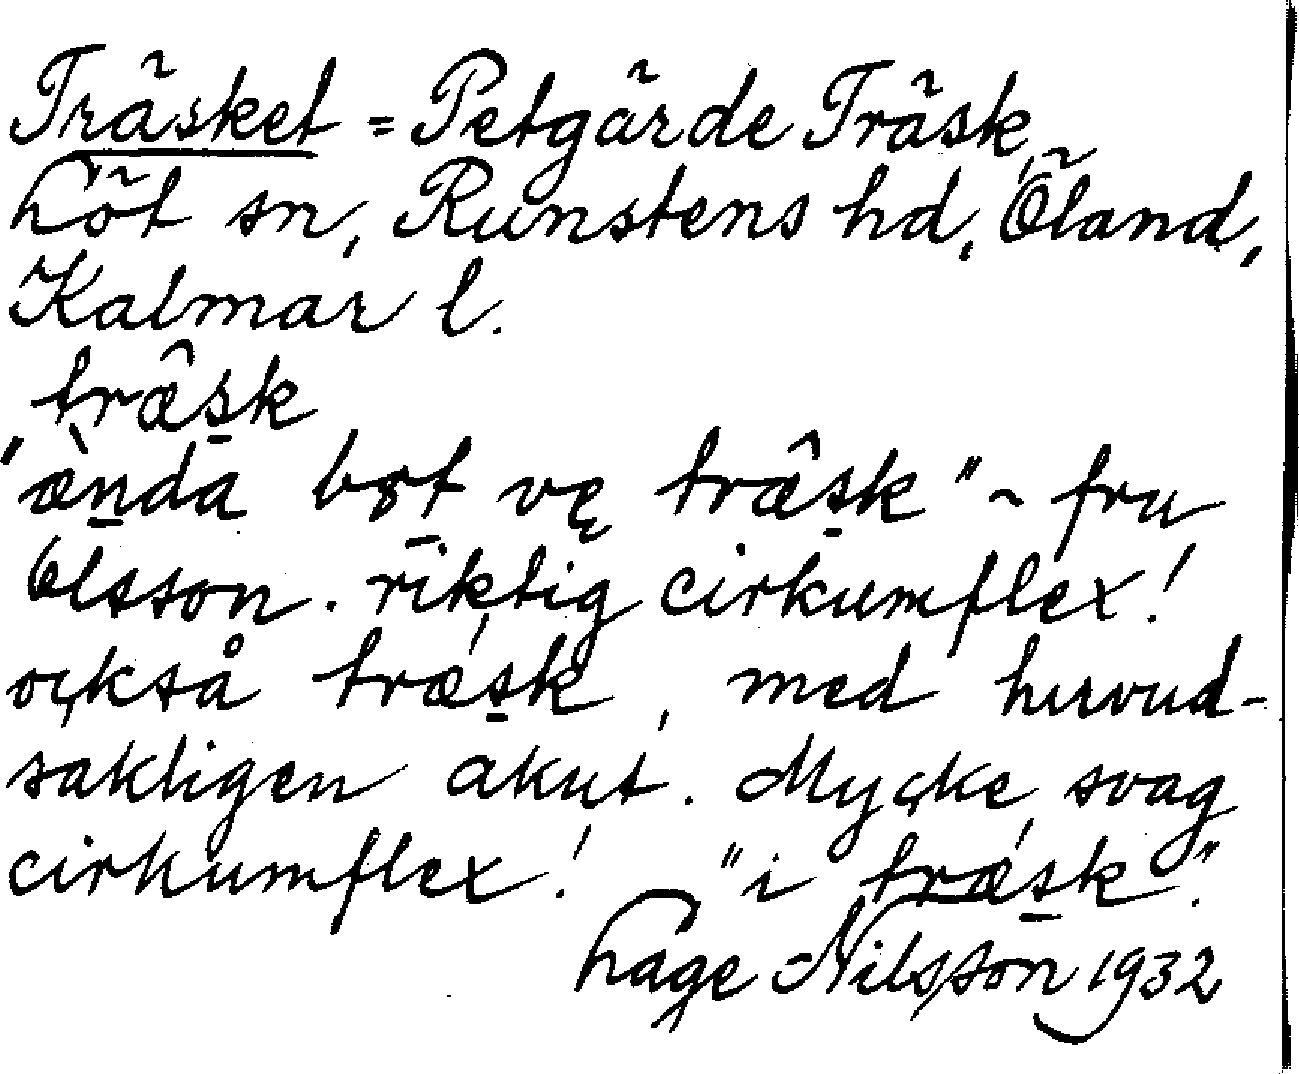 Träsket = Petgärde Träsk,
Löt sn, Runstens hd, Öland,
Kalmar l.
træ̂s̱k
"æ̀ṉda bo̱t vę træ̂s̱k" ~ fru
Olsson. riktig cirkumflex!
också trǽs̱k, med huvud-
sakligen akut. Mycke svag
cirkumflex! "i trǽs̱k".
Lage Nilsson 1932